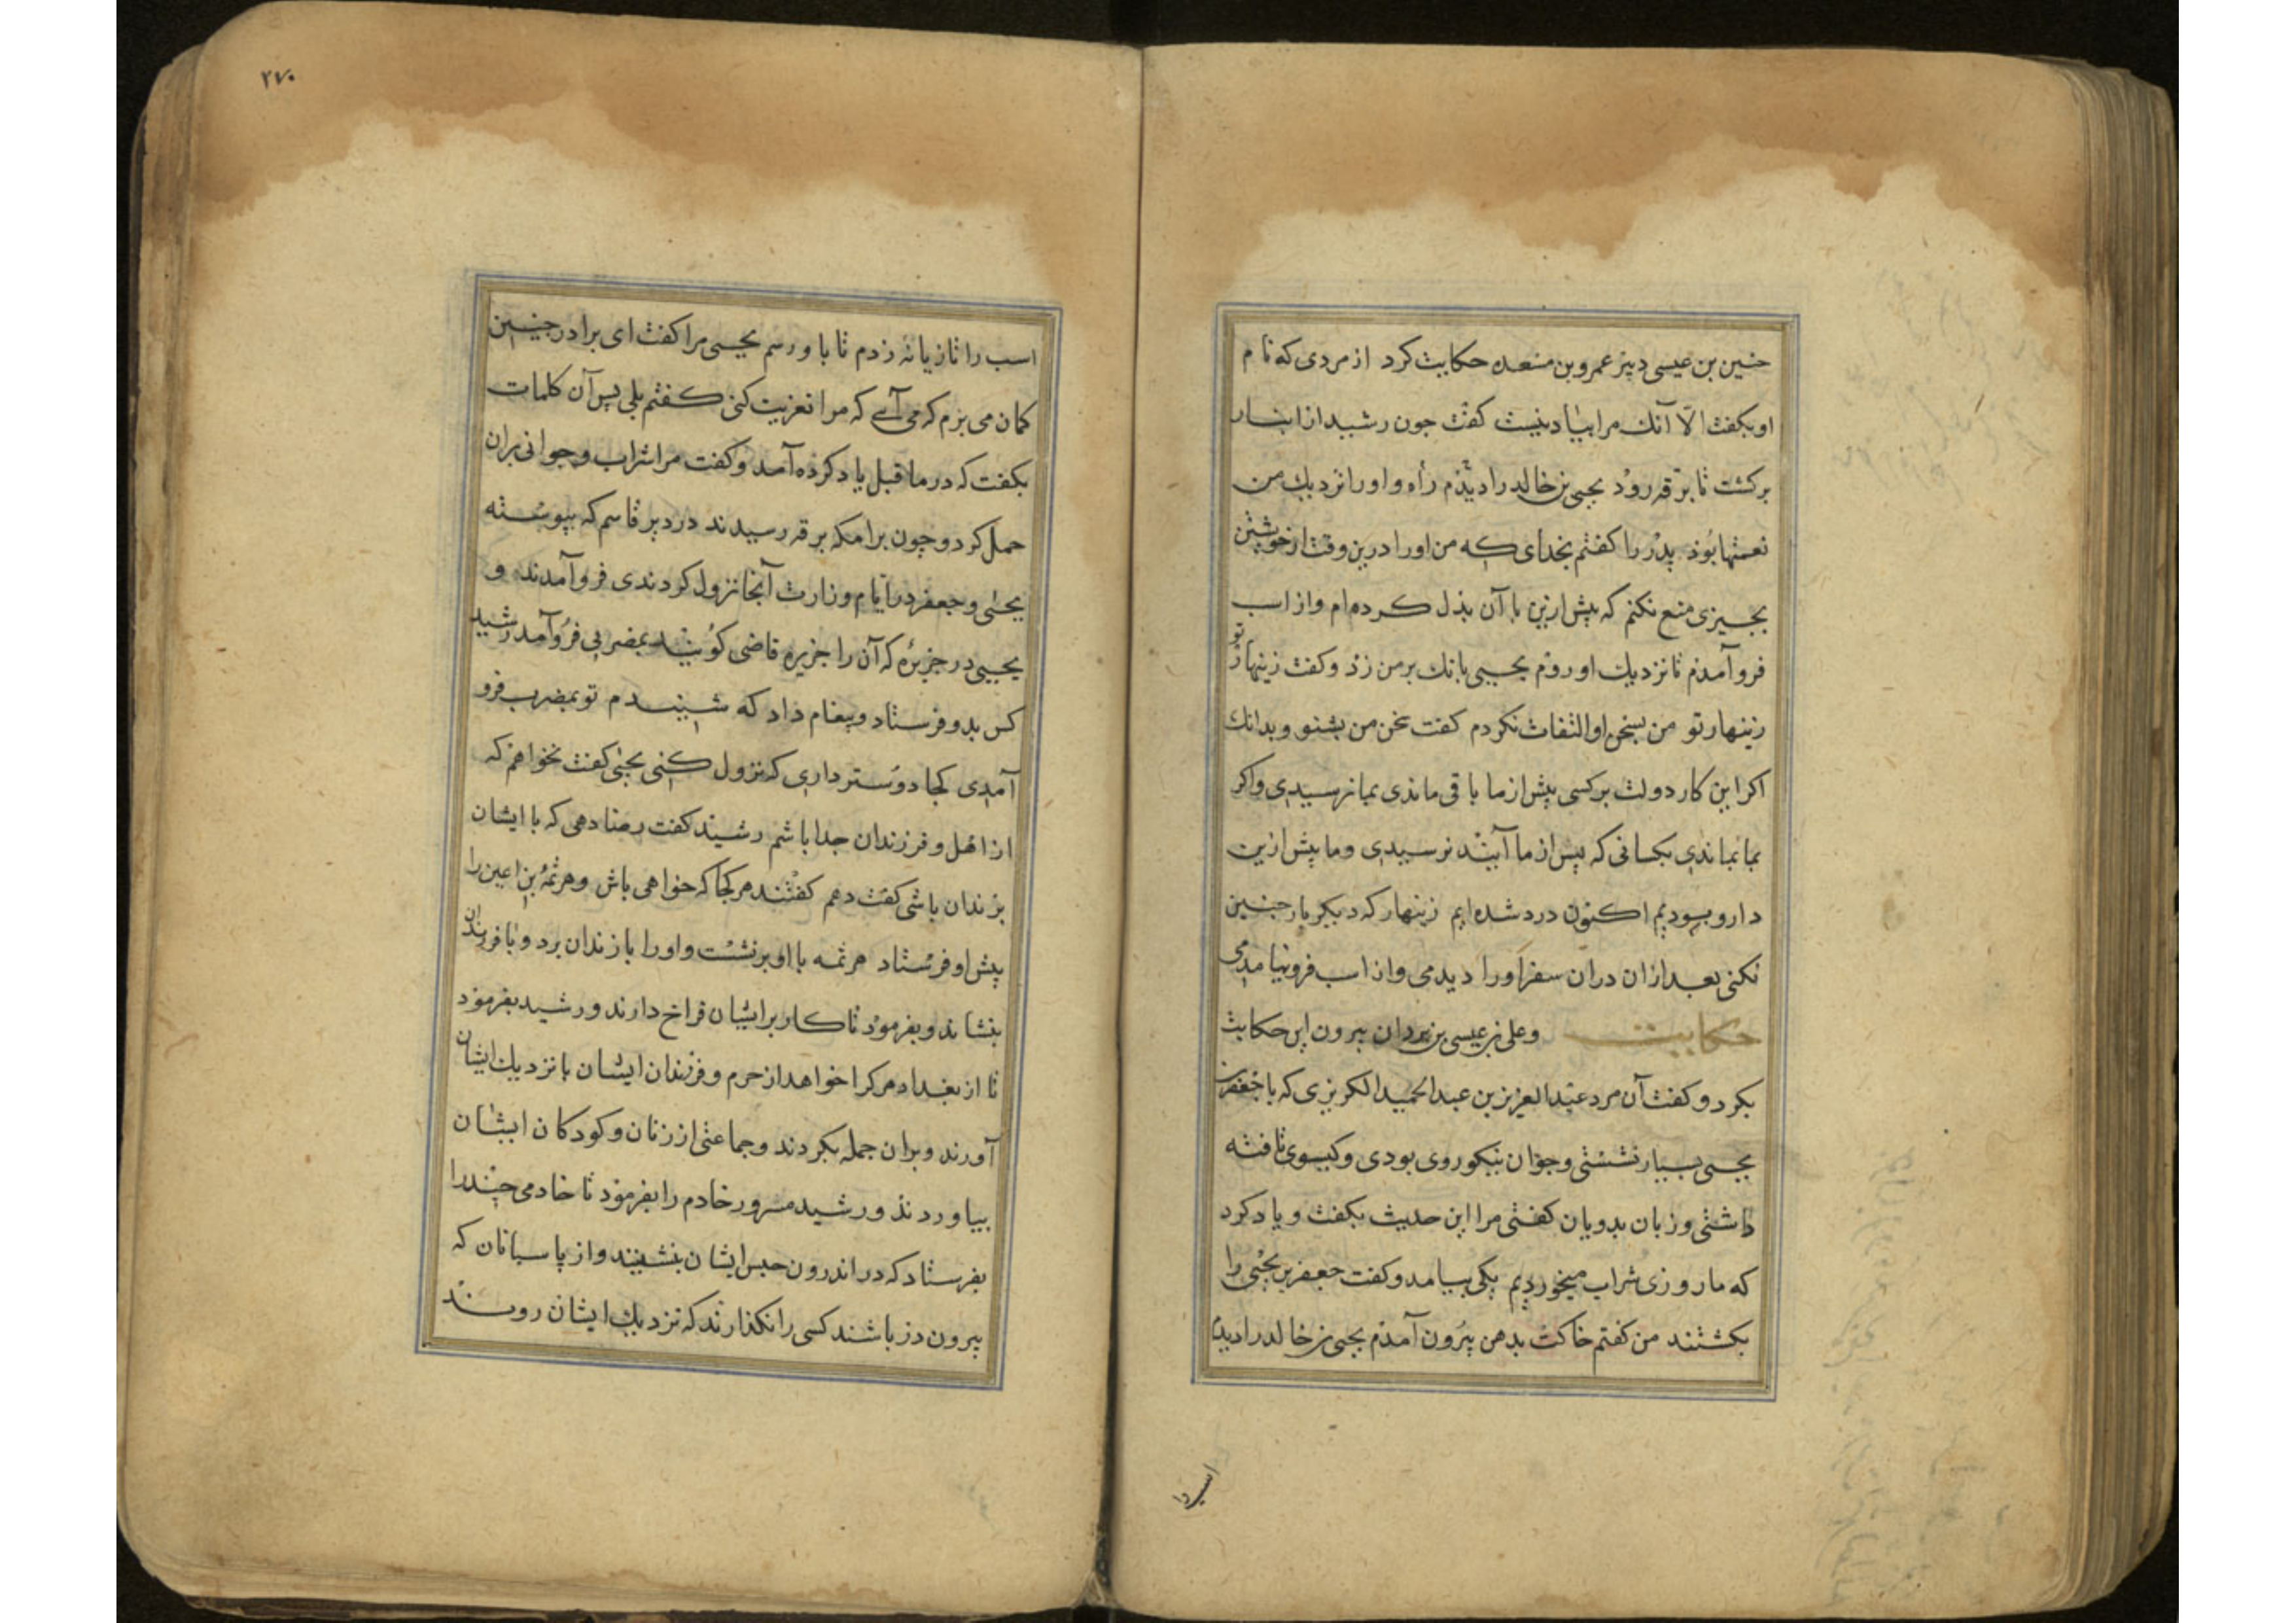 حنین بن عیسی دبیر عمرو بن منعده حکایت کرد از مردی که نام
او بکفت الّا آنک مرا بیاد نیست کفت جون رشید از انبار
برکشت تا برقه روذ یحیی بن خالد را دیذم راه و او را نزدیک من
نعمتها بوذ بدر را کفتم بخدای که من او را درین وقت از خویشتن
بجیزی منع نکنم که بیش ازین با آن بذل کرده‌ام و از اسب
فرو آمدم تا نزدیک او روم یحیی بانک بر من زد و کفت زینهار تو
زینهار تو من بسخن او التفات نکردم کفت سخن من بشنو و بدانک
اکر این کار دولت بر کسی بیش از ما باقی ماندی بما نرسیدی و اکر
بما بماندی بکسانی که بس از ما آیند نرسیدی و ما بیش ازین
دارو بودیم اکنون درد شده‌ایم زینهار که دیکر بار جنین
نکنی بعد از ان دران سفر او را دیدمی و از اسب فرو نیامدمی
حکایت و علی بن عیسی بن یردان بیرون این حکایت
بکرد و کفت آن مرد عبد العزیز بن عبد الحمید الکریزی که با جعفر بن
یحیی بسیار نشستی و جوان نیکو روی بودی و کیسوی تافته
داشتی و زبان بدویان کفتی مرا این حدیث بکفت و یاد کرد
که ما روزی شراب میخوردیم یکی بیامد و کفت جعفر بن یحیی را
بکشتند من کفتم خاکت بدهن بیرون آمدم یحیی بن خالد را دیدم
اسب را
۲۷۰
اسب را تازیانه زدم تا با و رسم یحیی مرا کفت ای برادر جنین
کمان می برم که می آیی که مرا تعزیت کنی کفتم بلی بس آن کلمات
بکفت که در ما قبل یاد کرده آمد و کفت مرا شراب و جوانی بران
حمل کرد و جون برامکه برقه رسیدند در دیر قاسم که بیوسته
یحیی و جعفر در ایام وزارت آنجا نزول کردندی فرو آمدند و
یحیی در جزیره که آن را جزیره قاضی کویند بمضربی فرو آمد رشید
کس بدو فرستاد و بیغام داد که شنیدم تو بمضرب فرو
آمدی کجا دوستر داری که نزول کنی یحیی کفت نخواهم که
از اهل و فرزندان جدا باشم رشید کفت رضا دهی که با ایشان
بزندان باشی کفت دهم کفتند هر کجا که خواهی باش و هرثمه بن اعین را
بیش او فرستاد هرثمه با او برنشست و او را با زندان برد و با فرزندان
بنشاند و بفرمود تا کار بر ایشان فراخ دارند و رشید بفرمود
تا از بغداد هر کرا خواهد از حرم و فرزندان ایشان با نزدیک ایشان
آورند و بران جمله بکردند و جماعتی از زنان و کودکان ایشان
بیاوردند و رشید مسرور خادم را بفرمود تا خادمی جند را
بفرستاد که در اندرون حبس ایشان بنشینند و از باسبانان که
بیرون در باشند کسی را نکذارند که نزدیک ایشان روند